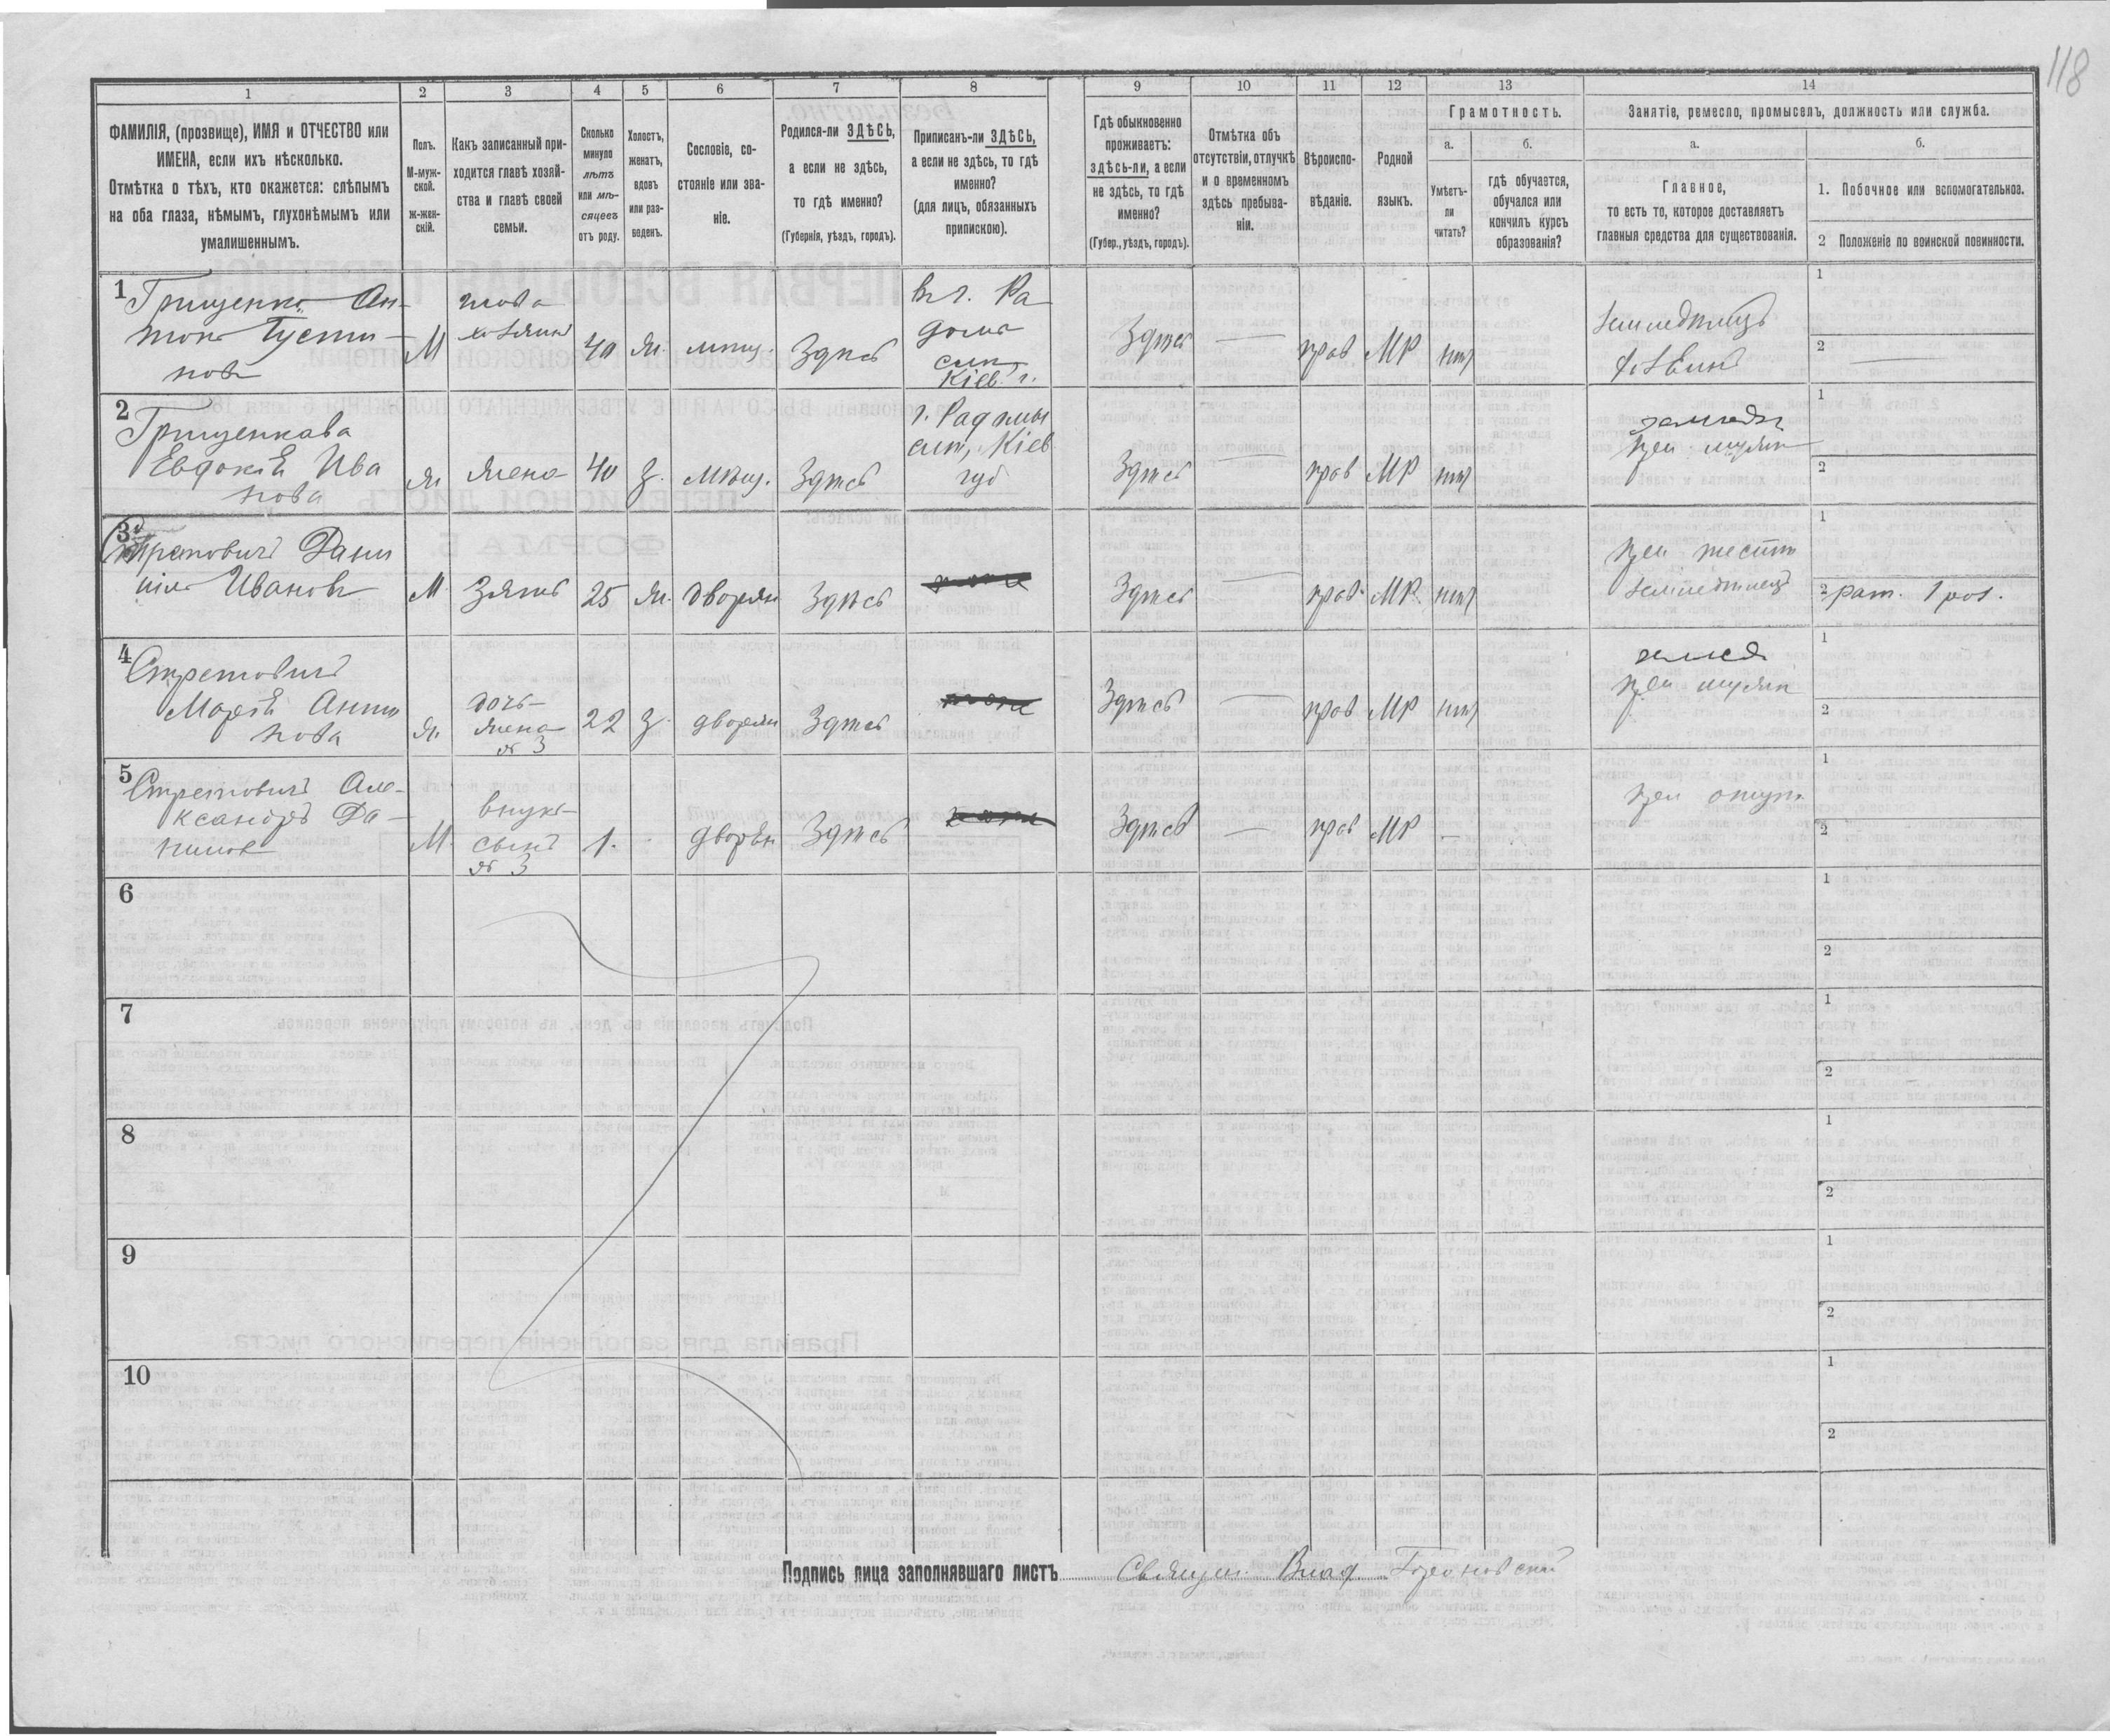 118
1 2 3 4 5 6 7 8 9 10 11 12 13 14
ФАМИЛІЯ, (прозвище), ИМЯ и ОТЧЕСТВО или
ИМЕНА, если ихъ нѣсколько.
Отмѣтка о тѣхъ, кто окажется: слѣпымъ
на оба глаза, нѣмымъ, глухонѣмымъ или
умалишеннымъ.
Полъ.
М-муж-
ской.
ж-жен-
скій.
Какъ записанный при-
ходится главѣ хозяй-
ства и главѣ своей
семьи.
Сколько
минуло
лѣтъ
или мѣ-
сяцевъ
отъ роду.
Холостъ,
женатъ,
вдовъ
или раз-
веденъ.
Сословіе, со-
стояніе или зва-
ніе.
Родился-ли ЗДѢСЬ,
а если не здѣсь,
то гдѣ именно?
(Губернія, уѣздъ, городъ).
Приписанъ-ли ЗДѢСЬ,
а если не здѣсь, то гдѣ
именно?
(для лицъ, обязанныхъ
припискою).
Гдѣ обыкновенно
проживаетъ:
здѣсь-ли, а если
не здѣсь, то гдѣ
именно?
(Губер., уѣздъ, городъ).
Отмѣтка объ
отсутствіи, отлучкѣ
и о временномъ
здѣсь пребыва-
ніи.
Вѣроиспо-
вѣданіе.
Родной
языкъ.
Грамотность.
а.
Умѣетъ-
ли
читать?
б.
гдѣ обучается,
обучался или
кончилъ курсъ
образованія?
Занятіе, ремесло, промыселъ, должность или служба.
а.
Главное,
то есть то, которое доставляетъ
главныя средства для существованія.
б.
1. Побочное или вспомогательное.
2 Положеніе по воинской повинности.
1
Грищенко Ан-
тонъ Густи-
новъ
М
глова
хозяинъ
40
ж.
мѣщ.
Здѣсь
Ра
дома
Кіев. г.
Здѣсь
—
прав
МР
нѣт
Земледѣлецъ
хозяинъ
1
2 —
2
Грищенкова
Евдокія Ива
нова
ж
жена
40
З.
мѣщ.
Здѣсь
г. Радомы
Кіев
губ
Здѣсь
—
прав
МР
нѣт
земледѣл
при мужѣ
1
2
3
Стретовичъ Дани
ілъ Ивановъ
М
Зять
25
ж.
дворян
Здѣсь
Здѣсь
—
прав.
МР.
нѣт
при тестѣ
земледѣлецъ
1
2 рат. 1 раз.
4
Стретовичъ
Марія Анто
нова
ж.
дочь—
жена
№ 3
22
З.
дворян
Здѣсь
Здѣсь
—
прав
МР
нѣт
при мужѣ
1
2
5
Стретовичъ Але-
ксандръ Да-
ниловъ
М.
внукъ—
сынъ
№ 3
1.
дворян
Здѣсь
Здѣсь
—
прав
МР
—
при отцѣ
1
2
6
1
2
7
1
2
8
1
2
9
1
2
10
1
2
Подпись лица заполнявшаго листъ Священ. Влад.